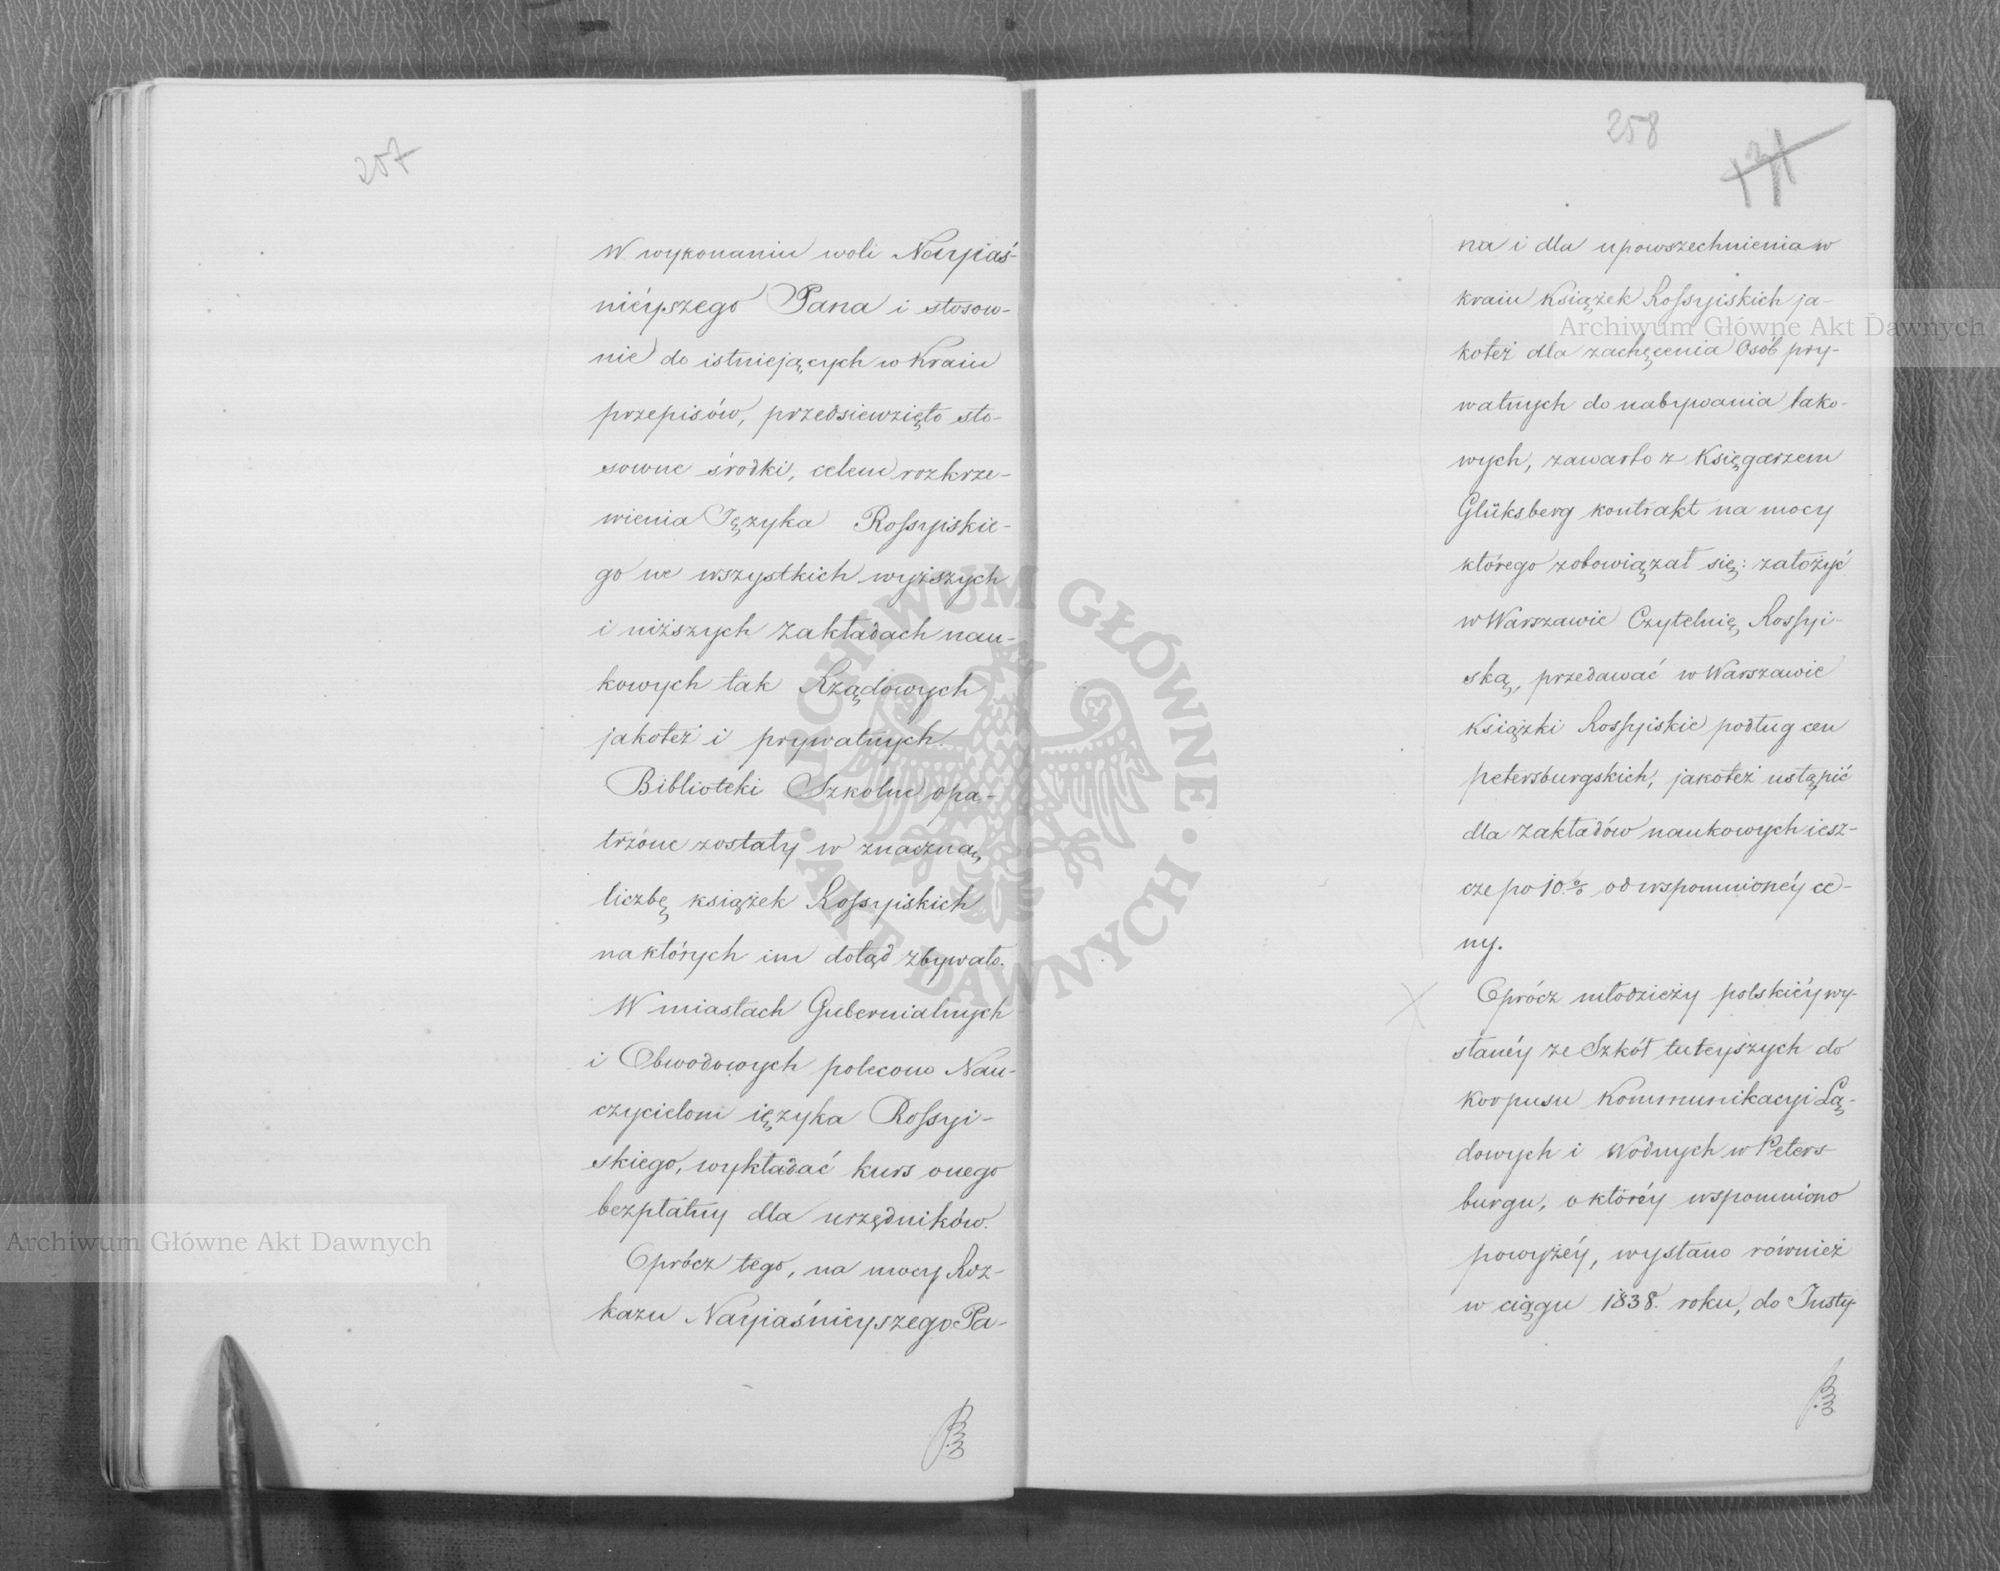 257
W wykonaniu woli Nayiaś-
nieyszego Pana i stosow-
nie do istniejących w Kraiu
przepisów, przedsiewzięto sto-
sowne środki, celem rozkrze-
wienia Języka Rossyiskie-
go we wszystkich wyższych
i niższych Zakładach nau-
kowych tak Rządowych
jakoteż i prywatnych.
Biblioteki Szkolne opa-
trzone zostały w znaczną
liczbę książek Rossyiskich
na których im dotąd zbywało.
W miastach Gubernialnych
i Obwodowych polecono Nau-
czycielom ięzyka Rossyi-
skiego, wykładać kurs onego
bezpłatny dla urzędników.
Oprócz tego, na mocy Roz-
kazu Nayiaśnieyszego Pa-
258
131
na i dla upowszechnienia w
kraiu Książek Rossyiskich ja-
koteż dla zachęcenia Osób pry-
watnych do nabywania tako-
wych, zawarto z Księgarzem
Glüksberg kontrakt na mocy
którego zobowiązał się: założyć
w Warszawie Czytelnię Rossyi-
ską, przedawać w Warszawie
Książki Rossyiskie podług cen
petersburgskich, jakoteż ustąpić
dla Zakładów naukowych iesz-
cze po 10 % od wspomnionéy ce-
ny.
Oprócz młodzieży polskiéy wy-
słanéy ze Szkół tuteyszych do
korpusu Kommunikacyi Lą-
dowych i Wodnych w Peters-
burgu, o któréy wspomniono
powyżéy, wysłano również
w ciągu 1838. roku, do Insty-
Archiwum Główne Akt Dawnych
Archiwum Główne Akt Dawnych
ARCHIWUM GŁÓWNE · AKT DAWNYCH ·